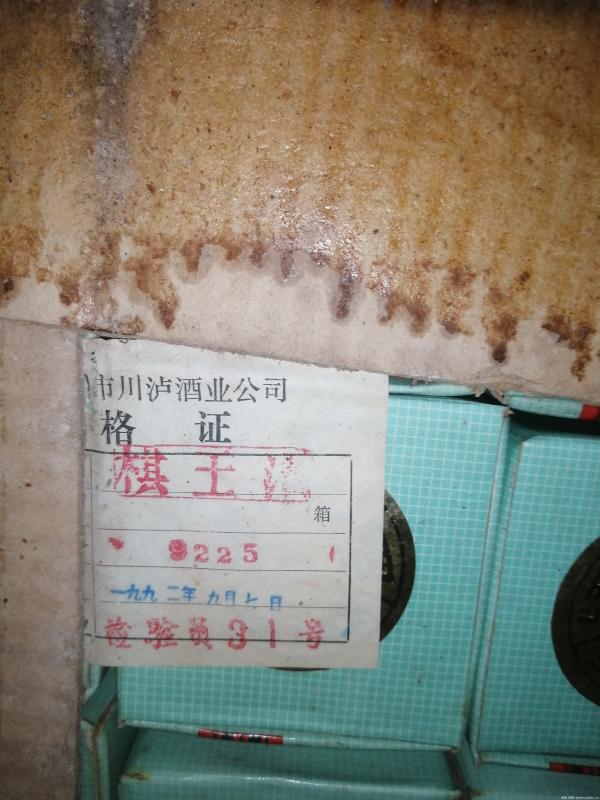 市川泸酒业公司
格 证
棋王
箱
9225
一九九二年九月七日
检验员31号